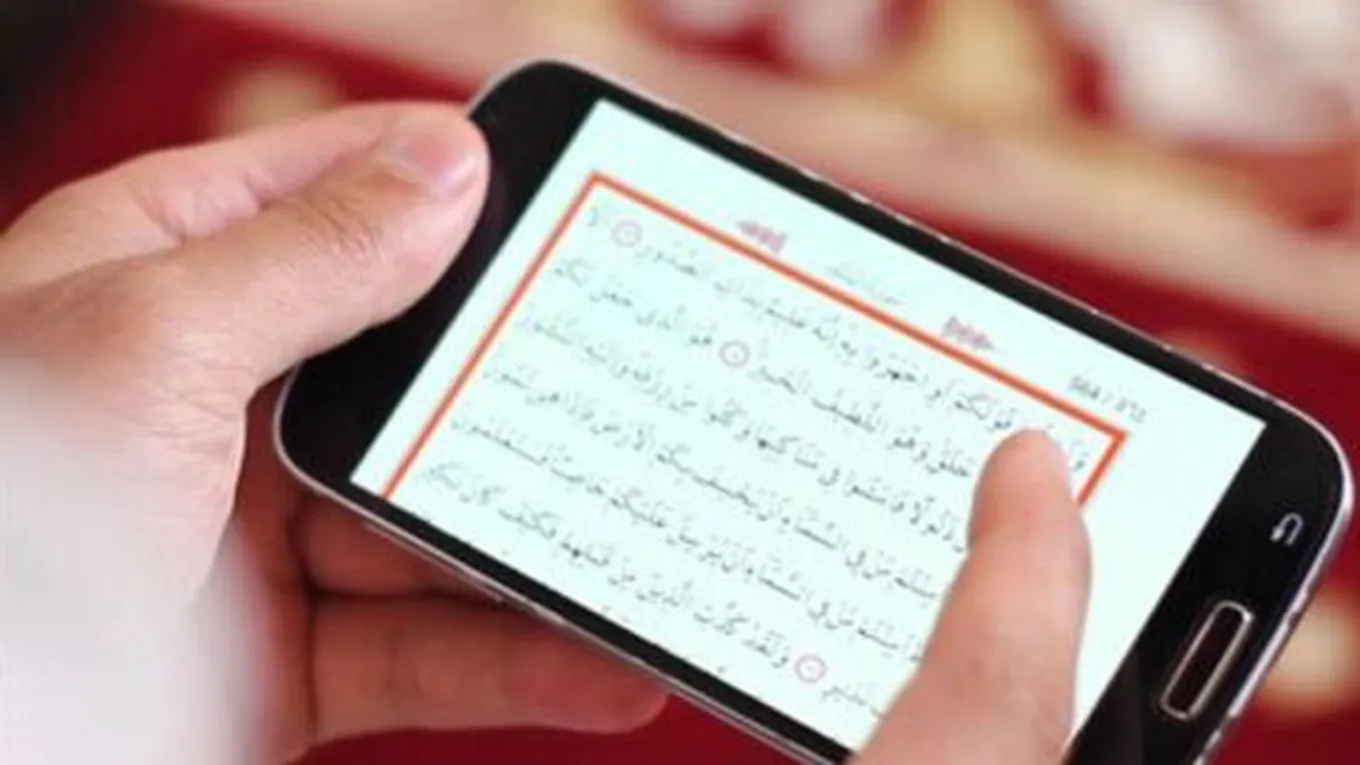 قَوْلَكُمْ أَوِ اجْهَرُوا بِهِ إِنَّهُ عَلِيمٌ بِذَاتِ الصُّدُورِ أَلَا
خَلَقَ وَهُوَ اللَّطِيفُ الْخَبِيرُ هُوَ الَّذِي جَعَلَ لَكُمُ
ذَلُولًا فَامْشُوا فِي مَنَاكِبِهَا وَكُلُوا مِنْ رِزْقِهِ وَإِلَيْهِ النُّشُورُ
مَنْ فِي السَّمَاءِ أَنْ يَخْسِفَ بِكُمُ الْأَرْضَ فَإِذَا هِيَ تَمُورُ
أَمِنْتُمْ مَنْ فِي السَّمَاءِ أَنْ يُرْسِلَ عَلَيْكُمْ حَاصِبًا فَسَتَعْلَمُونَ
نَذِيرِ وَلَقَدْ كَذَّبَ الَّذِينَ مِنْ قَبْلِهِمْ فَكَيْفَ كَانَ نَكِيرِ